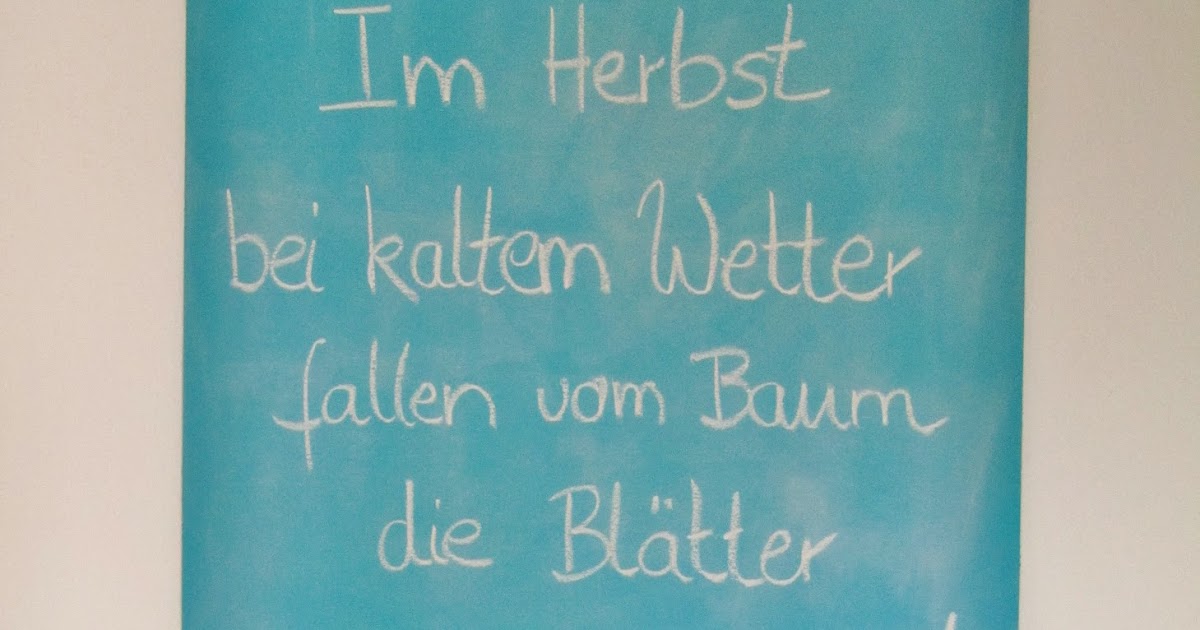 Im Herbst
bei kaltem Wetter
fallen vom Baum
die Blätter